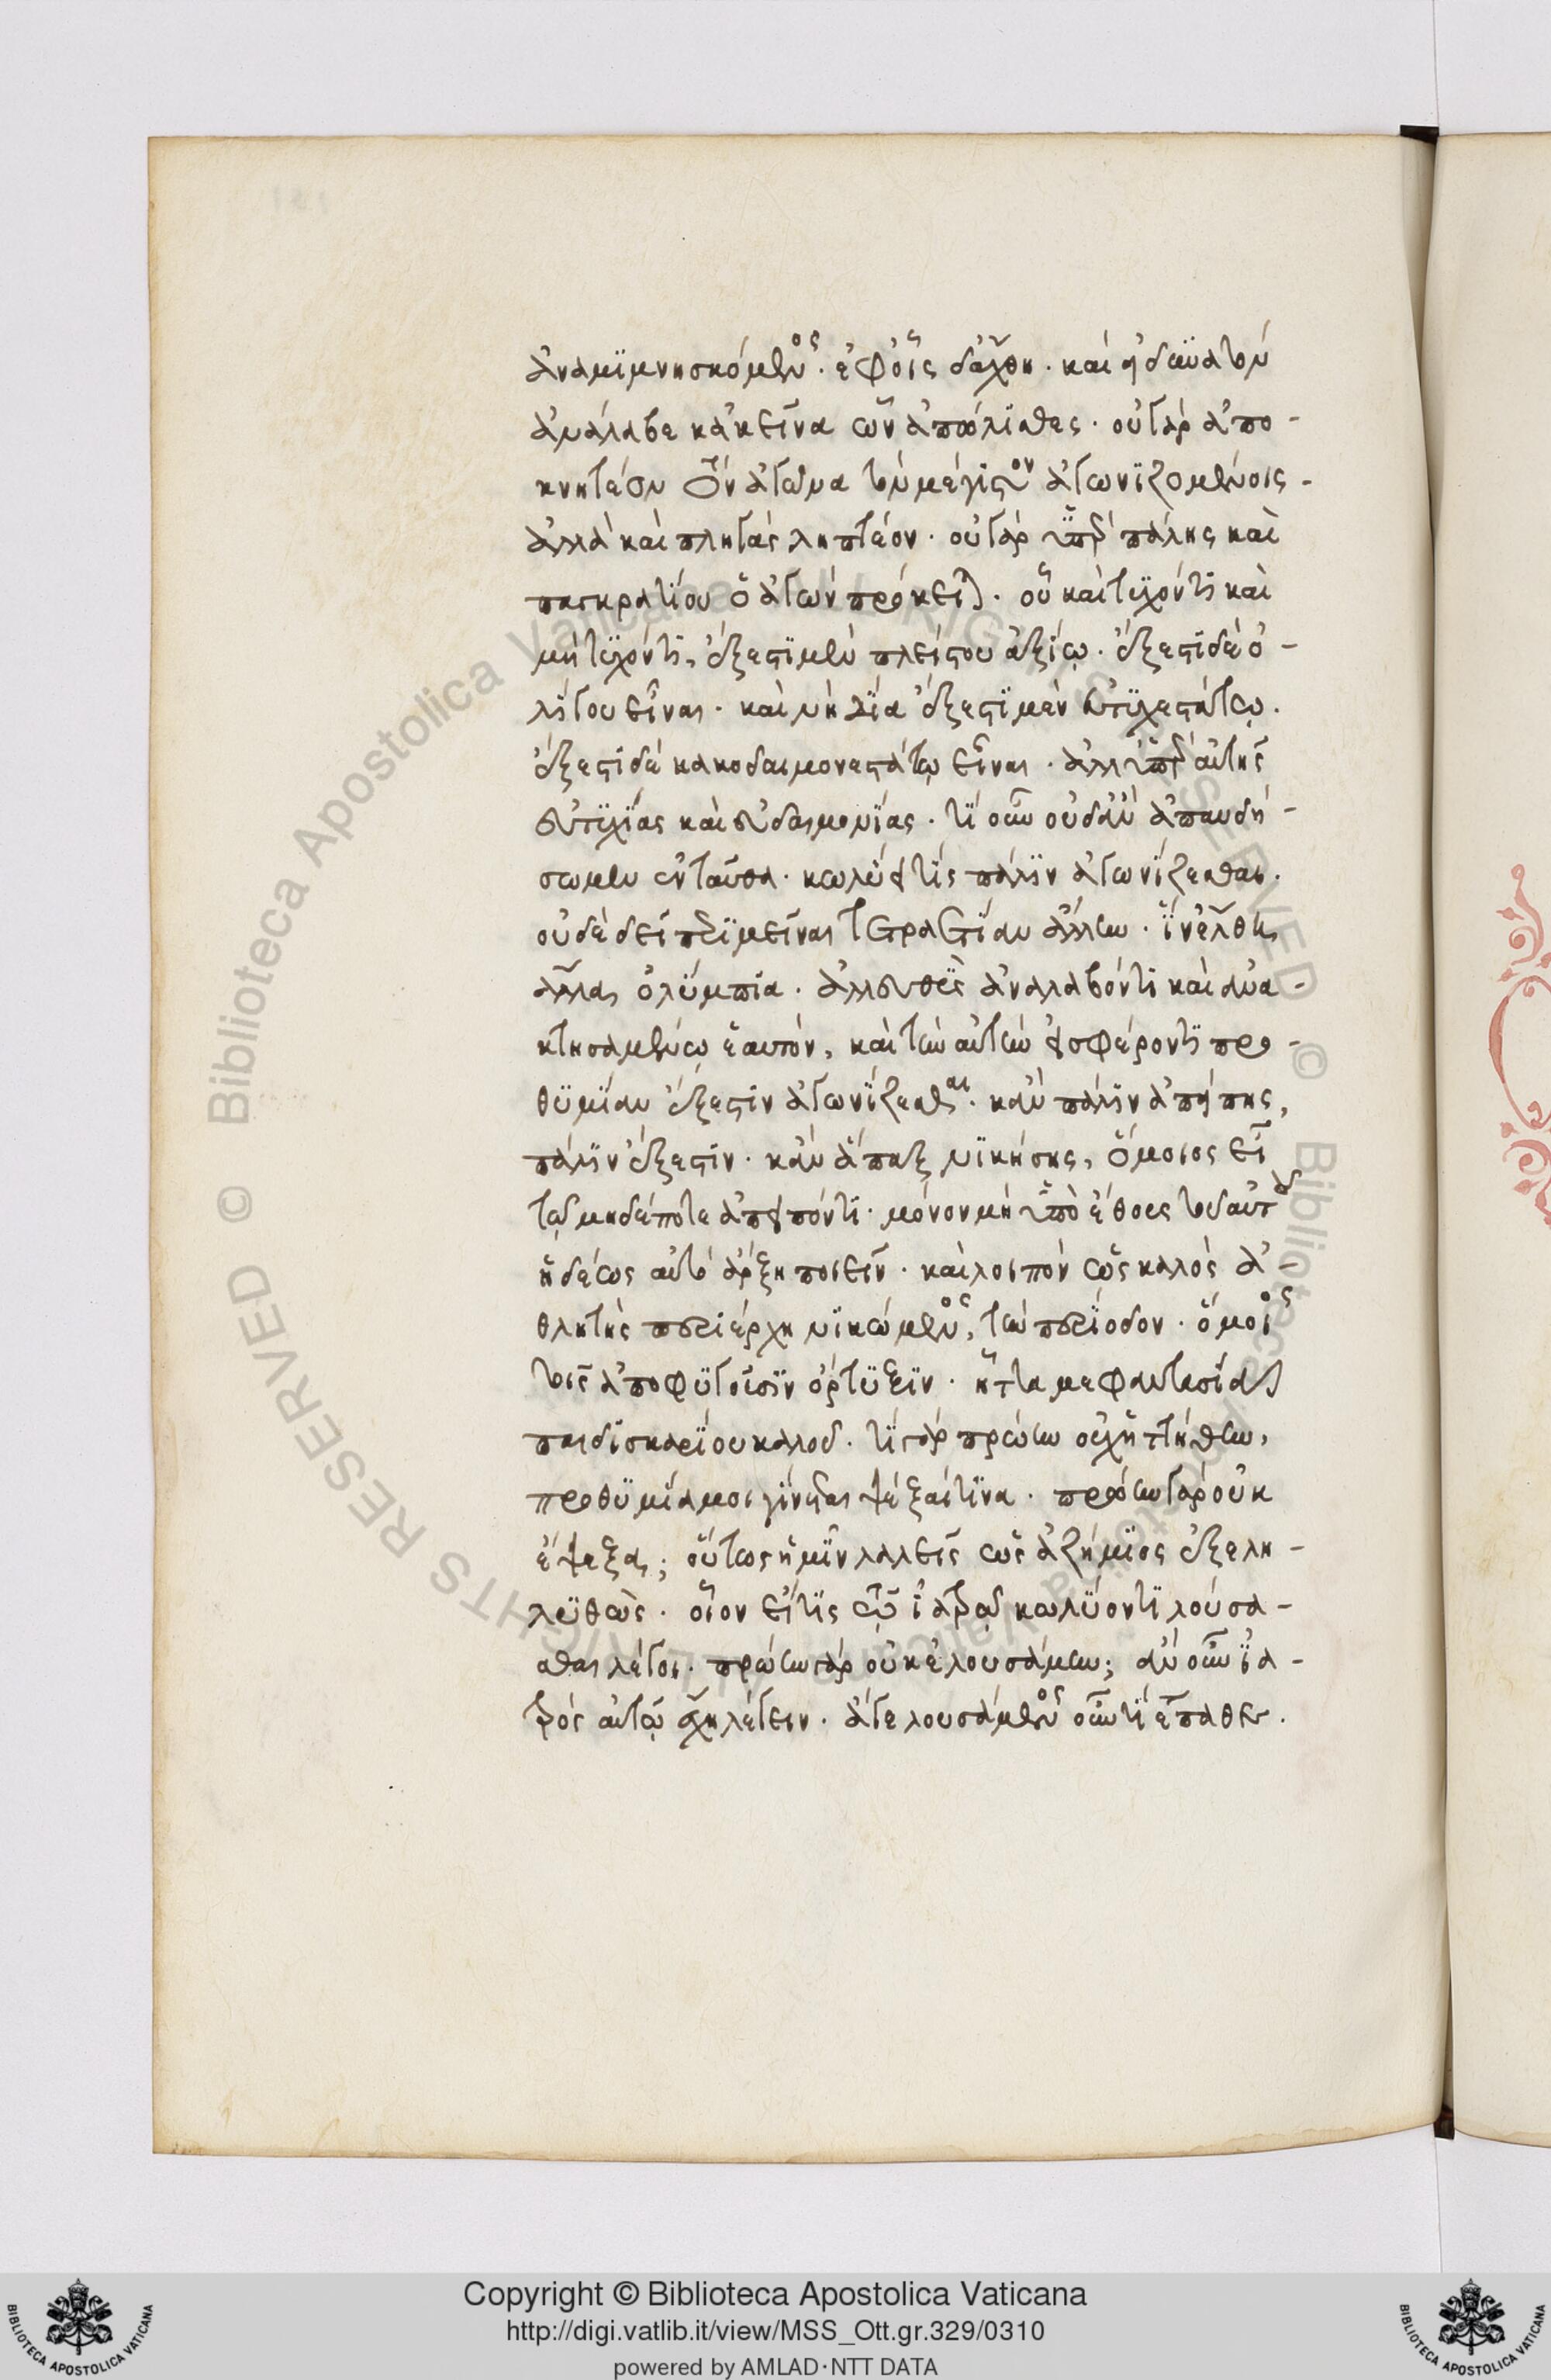 ἀναμιμνησκόμενος. ἐφ' οἷς δάχθη. καὶ εἰ δυνατόν
ἀνάλαβε κἀκεῖνα ὧν ἀπώλισθες. οὐ γὰρ ἀπο-
κνητέον τὸν ἀγῶνα τὸν μέγιστον ἀγωνιζομένοις.
ἀλλὰ καὶ πληγὰς ληπτέον. οὐ γὰρ ὑπὲρ πάλης καὶ
παγκρατίου ὁ ἀγὼν πρόκειται. οὗ καὶ τυχόντι καὶ
μὴ τυχόντι, ἔξεστι μὲν πλείστου ἀξίῳ. ἔξεστι δὲ ὀ-
λίγου εἶναι. καὶ νὴ Δία ἔξεστι μὲν εὐτυχεστάτῳ.
ἔξεστι δὲ κακοδαιμονεστάτῳ εἶναι. ἀλλ' ὑπὲρ αὐτῆς
εὐτυχίας καὶ εὐδαιμονίας. τί οὖν οὐδ' ἂν ἀπαυδή-
σωμεν ἐνταῦθα. κωλύει τις πάλιν ἀγωνίζεσθαι.
οὐδὲ δεῖ περιμεῖναι τετραετίαν ἄλλην. ἵν' ἔλθῃ
ἄλλα ὀλύμπια. ἀλλ' εὐθὺς ἀναλαβόντι καὶ ἀνα-
κτησαμένῳ ἑαυτόν, καὶ τὴν αὐτὴν εἰσφέροντι προ-
θυμίαν ἔξεστιν ἀγωνίζεσθαι. κἂν πάλιν ἀπείπης,
πάλιν ἔξεστιν. κἂν ἅπαξ νικήσης, ὅμοιος εἶ
τῷ μηδέποτε ἀπειπόντι. μόνον μὴ ὑπὸ ἔθους τοῦ αὐτοῦ
ἡδέως αὐτὸ ἄρξη ποιεῖν. καὶ λοιπὸν ὡς καλὸς ἀ-
θλητὴς περιέρχη νικώμενος, τὴν περίοδον. ὅμοιος
τοῖς ἀποφυγοῦσιν ὄρτυξιν. ἥττα με φαντασίας
παιδισκαρίου καλοῦ. τί γὰρ πρώην οὐχ ἡττήθην,
προθυμία μοι γίνεται ψέξαι τινα. πρώην γὰρ οὐκ
ἔψεξα; οὕτως ἡμῖν λαλεῖς ὡς ἀζήμιος ἐξελη-
λυθώς. οἷον εἴ τις τῷ ἰατρῷ κωλύοντι λούσα-
σθαι λέγοι. πρώην γὰρ οὐκ ἐλουσάμην; ἂν οὖν ἰα-
τρὸς αὐτῷ ἔχη λέγειν. ἄγε λουσάμενος οὖν τί ἔπαθες.
Copyright © Biblioteca Apostolica Vaticana
http://digi.vatlib.it/view/MSS_Ott.gr.329/0310
powered by AMLAD·NTT DATA